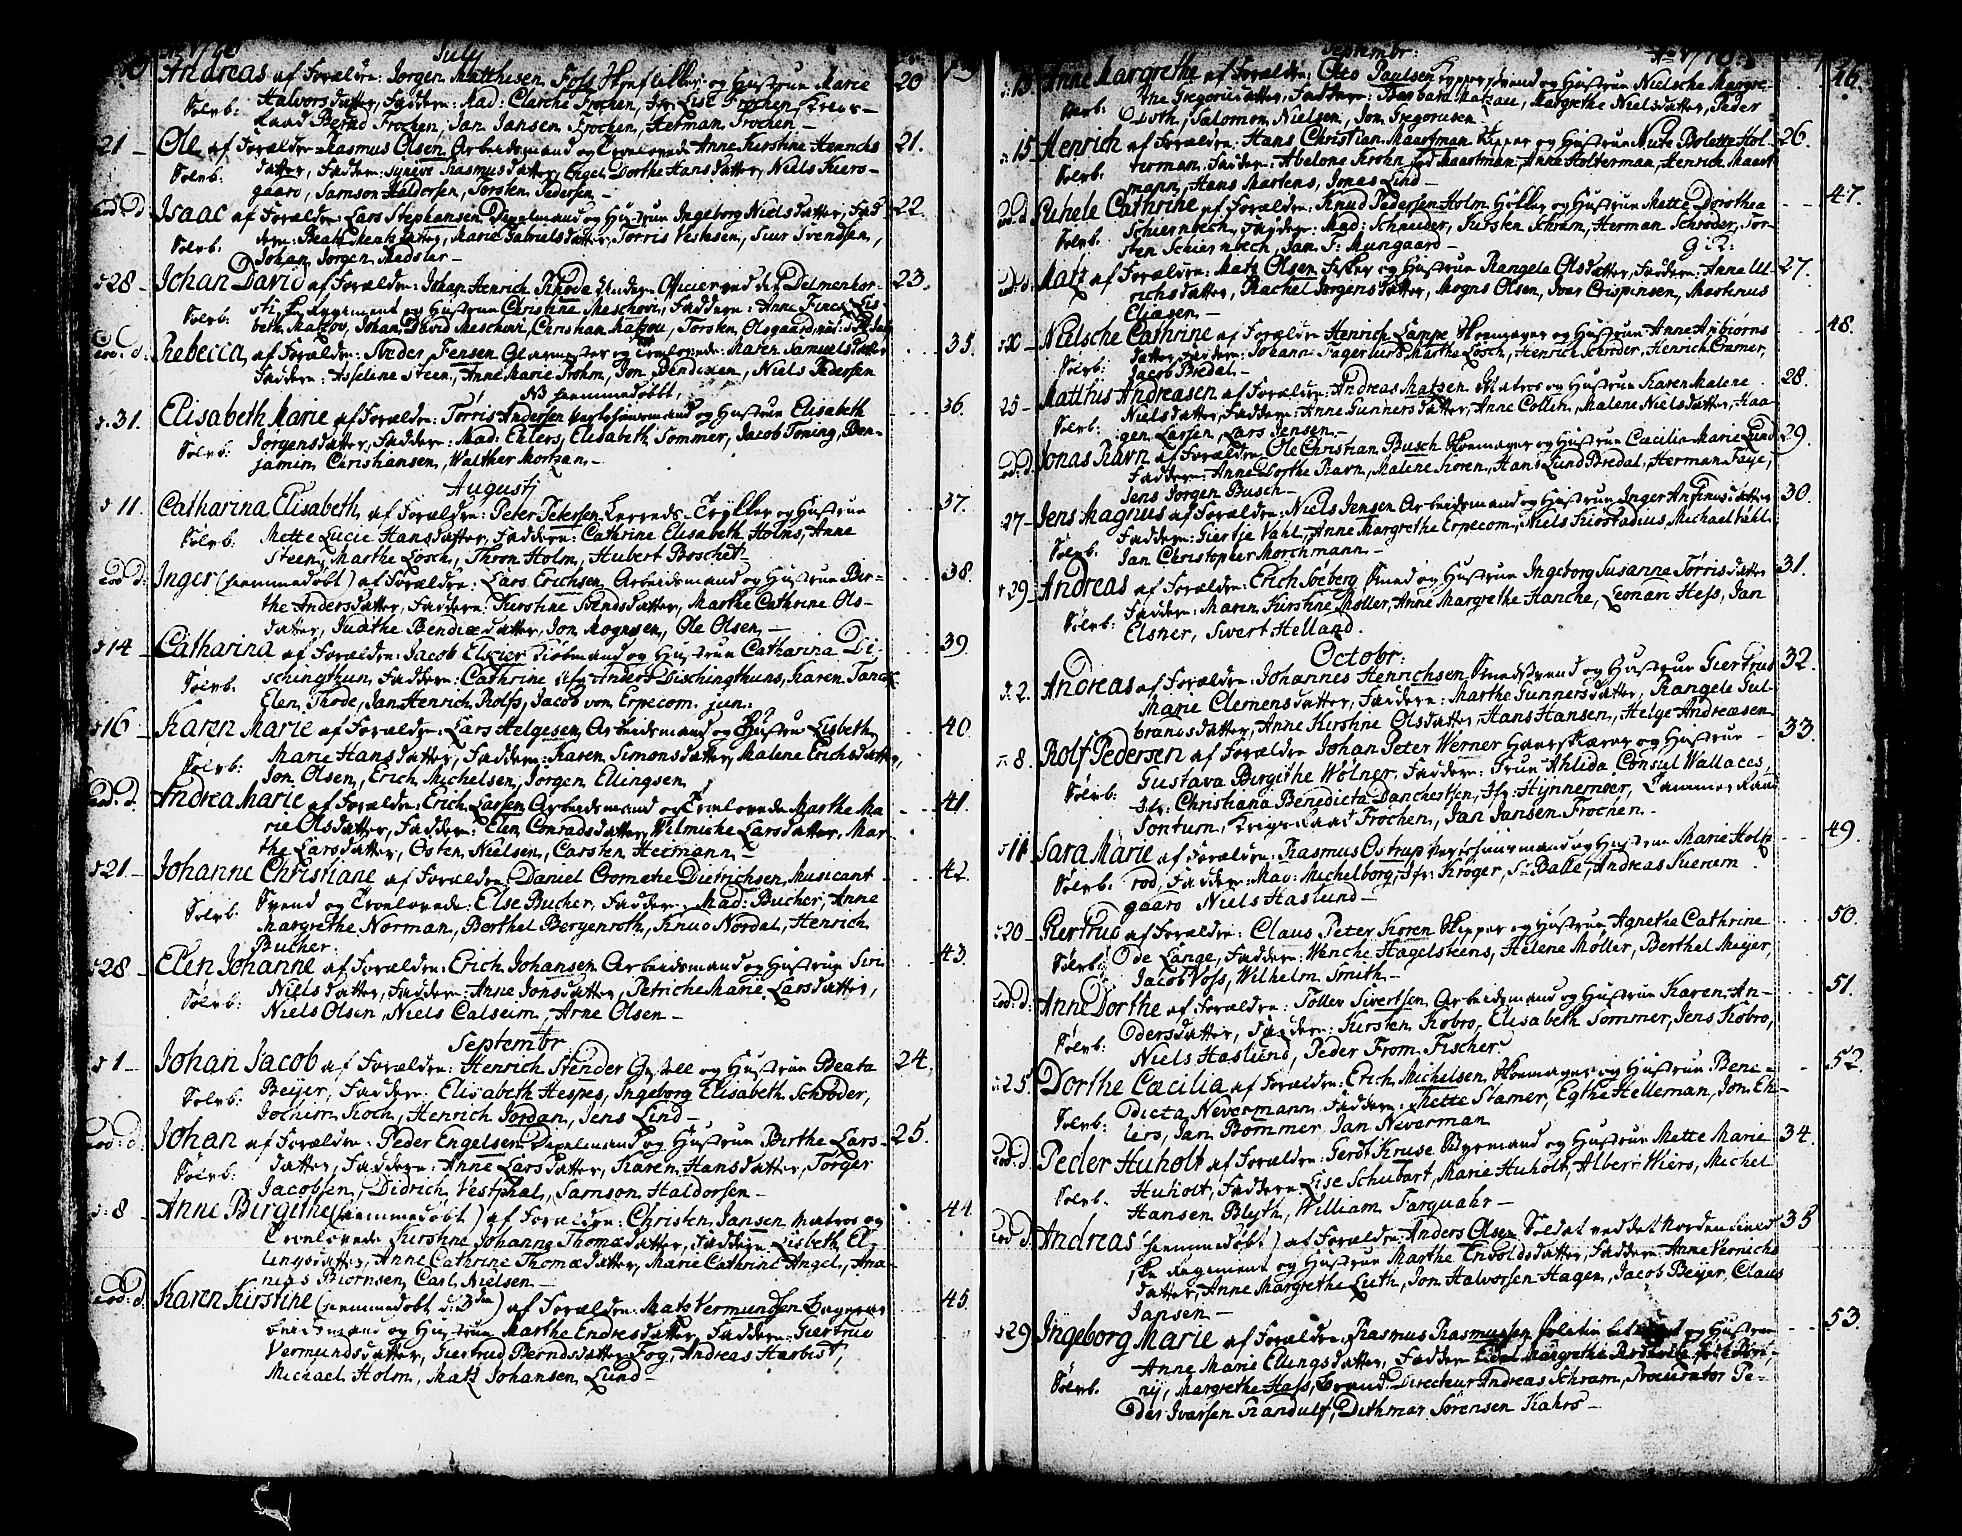 July
Andreas af Forældre: Jørgen Matthisen og Hustrue Marie 20
Sølvb: Halvorsdatter, Faddere: Mad: Clarche Frochen, Lise Frochen,
Raad Bernd Frochen, Jan Jansen Frochen, Herman Frochen -
21 - Ole af Forældre Rasmus Olsen Arbeidsmand og Trolovede Anne Kirstine Henrichs 21.
Sølvb: datter, Faddere: Synneve Rasmusdatter, Engel Dorthe Hansdatter, Niels Kiers-
gaard, Samson Haldorsen, Torsten Pedersen -
eod. d Isaac af Forældre: Lars Stephansen og Hustrue Ingeborg Nielsdatter, Fad 22.
Sølvb. dere: Beate Mentzdatter, Marie Gabrielsdatter, Torris Vestesen, Siur Svendsen,
Johan Jørgen Madsler -
28 - Johan David af Forældre: Johan Henrich Rhode Under Officier ved det Delmenhor- 23.
Sølvb: Regiment og Hustrue Christine Meschovi, Faddere: Anne Finch, Elis-
beth Matzov, Johan David Meschovi, Christian Matzou, Torsten Olsgaard,
eod. d. Rebecca, af Forældre: Jensen og Trolovede: Maren Samuelsdatter 35.
Faddere: Asselene Steen, Anne Marie Brohm, Jon Bendixen, Niels Pedersen
NB hiemmedøbt,
31. Elisabeth Marie af Forældre: Torris Andersen og Hustrue Elisabeth 36.
Sølvb: Jørgensdatter, Faddere: Mad: Ehlers, Elisabeth Sommer, Jacob Toning, Ben-
jamin Christiansen, Walther Mortzen -
Augusti
11. Catharina Elisabeth, af Forældre: Peter Petersen Lerreds-Trykker og Hustrue 37.
Sølvb: Mette Lucie Hansdatter, Faddere: Cathrine Elisabeth Holms, Anne
Steen, Marthe Losch, Thron Holm, Hubert Boschet -
eod d: Inger (hiemmedøbt) af Forældre: Lars Erichsen Arbeidsmand og Hustrue Bir- 38.
the Andersdatter, Faddere: Kirstine Svendsdatter, Marthe Cathrine Ols-
datter, Judithe Bendixdatter, Jon Mognsen, Ole Olsen -
14 - Catharina af Forældre: Jacob Elxier Kiøbmand og Hustrue Catharina Di- 39.
Sølvb. schingthun, Faddere: Cathrine Anders Dischingthuns, Karen Tanck,
Elen Thode, Jan Henrich Rolfs, Jacob von Erpecom jun:
16 - Karen Marie af Forældre: Lars Helgesen Arbeidsmand og Hustrue Lisbeth 40.
Sølvb. Marie Hansdatter, Faddere: Karen Simonsdatter, Malene Erichsdatter,
Jon Olsen, Erich Michelsen, Jørgen Ellingsen
eod. d. Andrea Marie af Forældre: Erich Larsen Arbeidsmand og Trolovede Marthe Ma 41.
rie Olsdatter, Faddere: Elen Conradsdatter, Wilmiche Larsdatter, Mar-
the Larsdatter, Osten Nielsen, Carsten Hermann -
21 - Johanne Christiane af Forældre Daniel Crometie Dietrichsen, Musicant 42.
Sølvb. Svend og Trolovede: Else Bucher, Faddere: Mad: Bucher, Anne
Margrethe Norman, Berthel Bergenroth, Knud Nordal, Henrich
Bucher.
28 - Elen Johanne af Forældre: Erich Johansen Arbeidsmand og Hustrue Siri 43.
Sølvb: Nielsdatter, Faddere: Anne Jonsdatter, Petriche Marie Larsdatter,
Niels Olsen, Niels Calseim, Arne Olsen -
Septembr:
1 - Johan Jacob af Forældre: Henrich Stender og Hustrue Beata 24.
Sølvb: Beijer, Faddere: Elisabeth Hespes, Ingeborg Elisabeth Schrøder,
Jochim Koch, Henrich Jordan, Jens Lind -
eod: d. Johan af Forældre: Peder Engelsen og Hustrue Birthe Lars- 25.
Sølvb: datter, Faddere: Anne Larsdatter, Karen Hansdatter, Torger
Jacobsen, Didrich Vestphal, Samson Haldorsen -
8 - Anne Birgithe (hiemmedøbt) af Forældre: Christen Jansen Matros og 44.
Trolovede Kirstine Johanne Thomædatter, Faddere: Lisbeth El-
lingsdatter, Anne Cathrine Thomædatter, Marie Cathrine Angel, Ana-
nias Biørnsen, Carl Nielsen -
eod: d. Karen Kirstine (hiemmedøbt d: 3den) af Forældre: Mats Vermundsen 45.
og Hustrue Marthe Endresdatter, Faddere: Giertrue
Vermundsdatter, Giertrud Berndsdatter Fog, Andreas Harbist,
Michael Holm, Matz Johansen Lund -
Septembr: Ao 1770
13. Anne Margrethe af Forældre: Otto Paulsen og Hustrue Nielsche Margre- 46.
Sølvb. the Gregoriidatter, Faddere: Barbara Matzau, Margrethe Nielsdatter, Peder
Doth, Salomon Nielsen, Jon Gregoriusen
15 - Henrich af Forældre: Hans Christian Maartman Skipper og Hustrue Nute Bolette Hol- 26.
Sølvb. terman, Faddere: Abelone Krohn Maartman, Anne Holterman, Henrich Maart
mann, Hans Martens, Jonas Lind -
eod. d. Cathrine af Forældre: Knud Pedersen Holm Høker og Hustrue Mette Dorothea 47.
Sølvb. Schiernbech, Faddere: Mad: Schneider, Kirsten Schram, Herman Schrøder, Tor-
sten Schiernbech, Jan S: Mungaard -
eod. d: Matz af Forældre: Matz Olsen Fisker og Hustrue Rangele Olsdatter, Faddere: Anne Ul- 27.
richsdatter, Rachel Jørgensdatter, Mogns Olsen, Iver Crispinsen, Martinus
Eliasen -
20 - Nielsche Cathrine af Forældre Henrich Lampe og Hustrue Anne Anbiørns 48.
Sølvb. datter, Faddere: Johann Fagerlund, Marthe Losch, Henrich Schrøder, Henrich Cramer,
Jacob Bredal. -
25 - Matthis Andreasen af Forældre: Andreas Matzen Matros og Hustrue Karen Malene 28.
Sølvb. Nielsdatter, Faddere: Anne Gunnersdatter, Anne Collin, Malene Nielsdatter, Haa-
gen Larsen, Lars Jensen -
eod. d. Jonas Ravn af Forældre Ole Christian Busch og Hustrue Cæcilia Marie Lund 29.
Faddere: Anne Dorthe Ravn, Malene Koren, Hans Lund Bredal, Herman Faye,
Jens Jørgen Busch -
27 - Jens Magnus af Forældre: Niels Jensen Arbeidsmand og Hustrue Inger Anfinusdatter 30.
Sølvb. Faddere: Giertje Vahl, Anne Margrethe Erpecom, Niels Kierstadius, Michael Vahl.
Jan Christopher Morchmann -
29 - Andreas af Forældre: Erich Søeberg Smed og Hustrue Ingeborg Susanne Torrisdatter 31.
Sølvb. Faddere: Maren Kirstine Møller, Anne Margrethe Hanche, Leonari Hess, Jan
Elsner, Sivert Helland.
Octobr:
2. Andreas af Forældre: Johannes Henrichsen Smedsvend og Hustrue Giertrud 32.
Marie Clemensdatter, Faddere: Marthe Gunnersdatter, Rangele Gul-
brandsdatter, Anne Kirstine Olsdatter, Hans Hansen, Helge Andreasen
8. Rolf Pedersen af Forældre Johan Peter Werner og Hustrue 33.
Sølvb: Gustava Birgithe Wølner, Faddere: Frue Ahlida Consul Wallaces,
Jfr: Christiana Benedicta Danchertsen, Jfr: Hynnemøer, Kammer Raad
Fontum, Krigs Raad Frochen, Jan Jansen Frochen -
11 Sara Marie af Forældre: Rasmus Ostrup og Hustrue Marie Holte 49.
Sølvb. rod, Faddere: Mad: Michelborg, Jfr: Krøger, Sr Balle, Andreas
gaard Niels Haslund -
20 - Giertrud af Forældre: Claus Peter Koren Skipper og Hustrue Agnethe Cathrine 50.
Sølvb: Ode Lange, Faddere: Wenche Hagelsteens, Helene Møller, Berthel Meyer,
Jacob Voss, Wilhelm Smith -
eod d: Anne Dorthe af Forældre: Toller Sivertsen Arbeidsmand og Hustrue Karen An- 51.
Sølvb: dersdatter, Faddere: Kirsten Kobro, Elisabeth Sommer, Jens Kobro,
Niels Haslund, Peder From Fischer
25. Dorthe Cæcilia af Forældre: Erich Michelsen og Hustrue Bene- 52.
Sølvb: dicta Nevermann, Faddere: Mette Stamer, Egthe Helleman, Jon Eh-
lers, Jan Bommer, Jan Neverman
eod d Peder Huholt af Forældre: Gerdt Kruse og Hustrue Mette Marie 34.
Sølvb. Huholt, Faddere: Lise Schubart, Marie Huholt, Albert Wiers, Michel
Hansen Blyth, William Farquahr -
eod d Andreas (hiemmedøbt) af Forældre: Anders Olsen Soldat ved det Nordenfield 35
ske Regiment og Hustrue Marthe Envoldsdatter, Faddere: Anne Vernichs
datter, Anne Margrethe Luth, Jon Halvorsen Hagen, Jacob Beijer, Claus
Jansen -
29 Ingeborg Marie af Forældre: Rasmus Rasmussen og Hustrue 53.
Anne Marie Ellingsdatter, Faddere
Sølvb. Margrethe Hass, Brand Directeur Andreas Schram, Procurator Pe-
der Ivarsen Randulf, Dithmar Sørensen Kahrs -